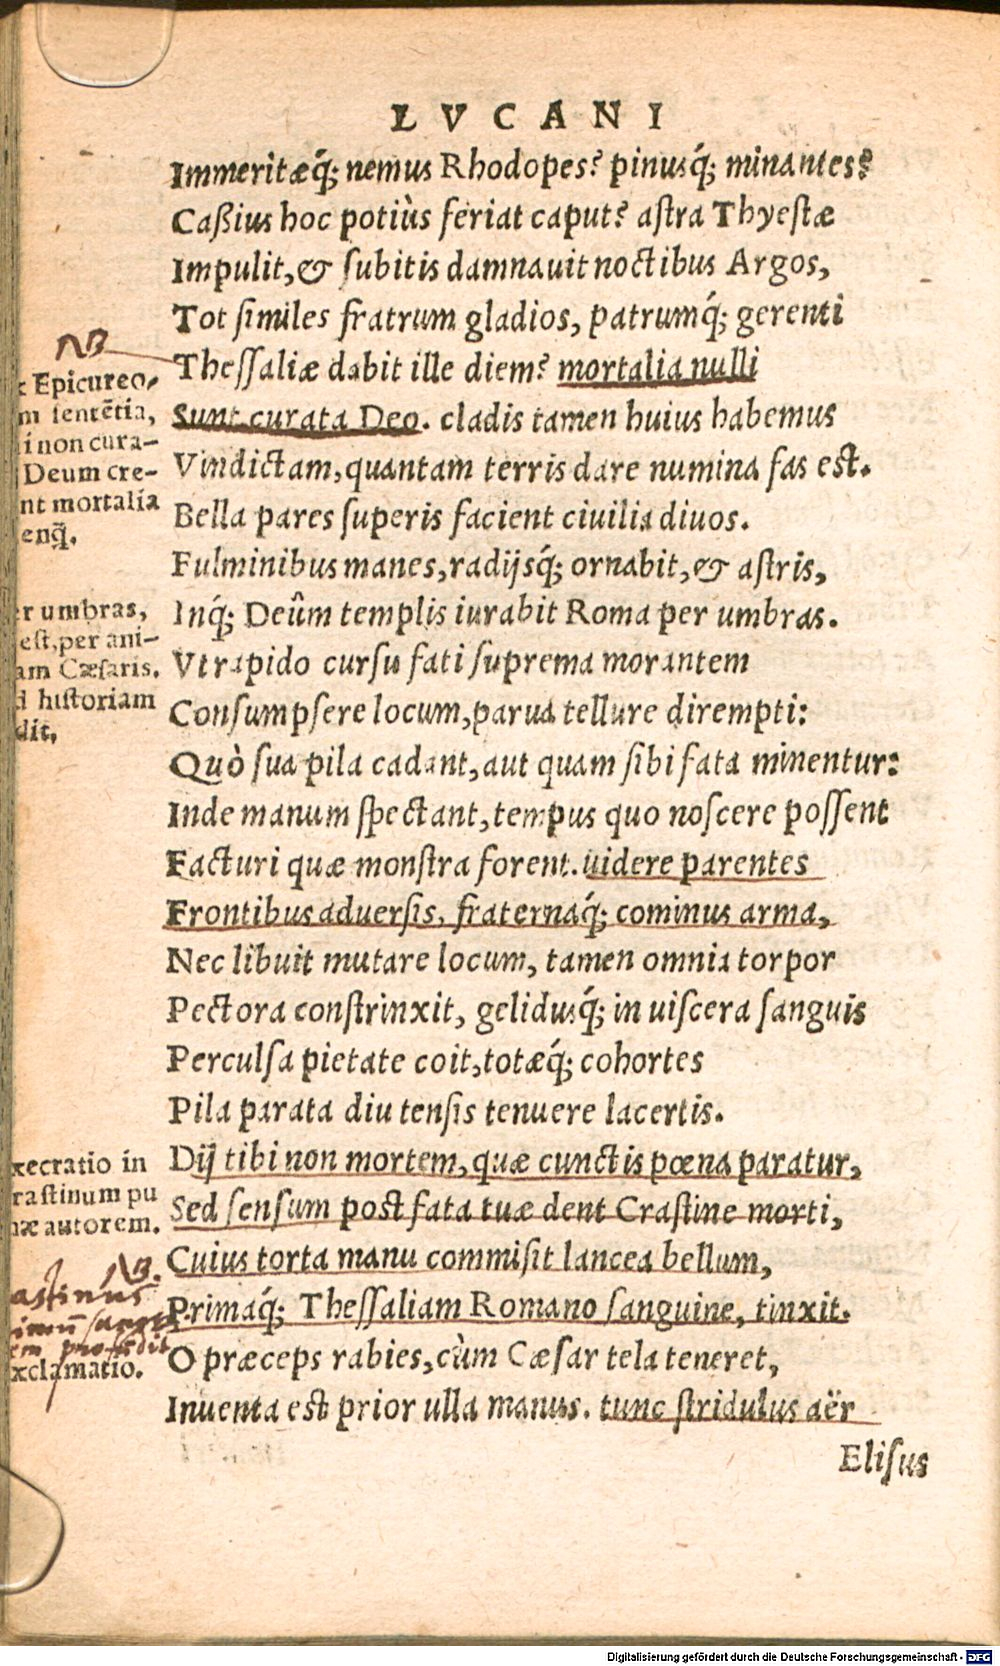 LVCANI
Immeritæq́; nemus Rhodopes? pinusq́; minantes?
Caßius hoc potiùs feriat caput? astra Thyestæ
Impulit, & subitis damnauit noctibus Argos,
Tot similes fratrum gladios, patrumq́; gerenti
Thessaliæ dabit ille diem? mortalia nulli
Sunt curata Deo. cladis tamen huius habemus
Vindictam, quantam terris dare numina fas est.
Bella pares superis facient ciuilia diuos.
Fulminibus manes, radijsq́; ornabit, & astris,
Inq́; Deûm templis iurabit Roma per umbras.
Vt rapido cursu fati suprema morantem
Consumpsere locum, parua tellure dirempti:
Quò sua pila cadant, aut quam sibi fata minentur:
Inde manum spectant, tempus quo noscere possent
Facturi quæ monstra forent. uidere parentes
Frontibus aduersis, fraternaq́; cominus arma,
Nec libuit mutare locum, tamen omnia torpor
Pectora constrinxit, gelidusq́; in uiscera sanguis
Perculsa pietate coit, totæq́; cohortes
Pila parata diu tensis tenuere lacertis.
Dij tibi non mortem, quæ cunctis pœna paratur,
Sed sensum post fata tuæ dent Crastine morti,
Cuius torta manu commisit lancea bellum,
Primaq́; Thessaliam Romano sanguine, tinxit.
O præceps rabies, cùm Cæsar tela teneret,
Inuenta est prior ulla manus. tunc stridulus aër
Elisus
NB
Epicureo-
m sentẽtia,
i non cura-
Deum cre-
nt mortalia
enq̃.
r umbras,
est, per ani-
am Cæsaris.
d historiam
dit,
xecratio in
rastinum pu
næ autorem.
NB.
astinus
xclamatio.
Digitalisierung gefördert durch die Deutsche Forschungsgemeinschaft - DFG